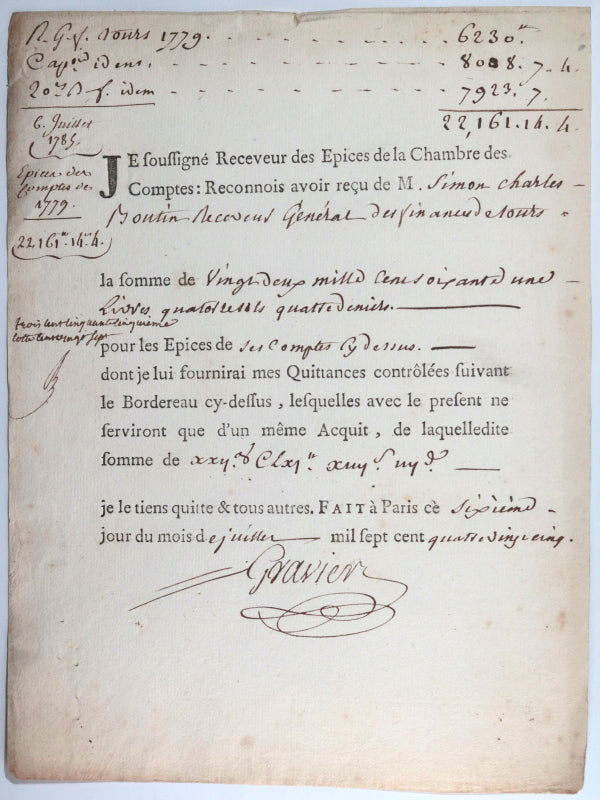 R. G. f. tours 1779. - - - - - - - 6230.tt
Cap.on idem. - - - - - - - 8008. 7. 4.
20.es B. f. idem - - - - - - - 7923. 7.
22,161. 14. 4.
6. Juillet
1785.
Epices des
Comptes de
1779.
22,161.tt 14.s 4.
JE souſſigné Receveur des Epices de la Chambre des
Comptes: Reconnois avoir reçu de M. Simon Charles
Boutin Receveur Général des finances de tours
la ſomme de Vingt deux mille Cent soixante une
Livres quatorze sols quatre deniers.
trois cent cinquante cinquieme
cotte cent vingt sept
pour les Epices de ses Comptes Cy dessus.
dont je lui fournirai mes Quittances contrôlées ſuivant
le Bordereau cy-deſſus, leſquelles avec le preſent ne
ſerviront que d'un même Acquit, de laquelledite
ſomme de xxij.m Clxj.tt xiiij.s iiij.d
je le tiens quitte & tous autres. FAIT à Paris cè sixième
jour du mois de juillet mil ſept cent quatre vingt cinq.
Gravier